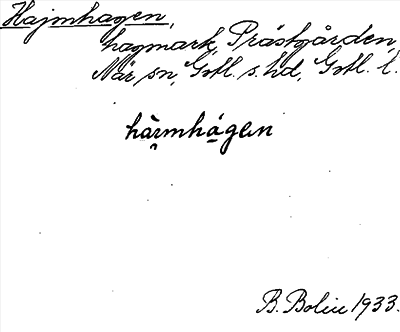 Hajmhagen,
hagmark, Prästgården,
När sn, Gotl. s. hd, Gotl. l.
hàrmhágen
B. Bolin 1933.